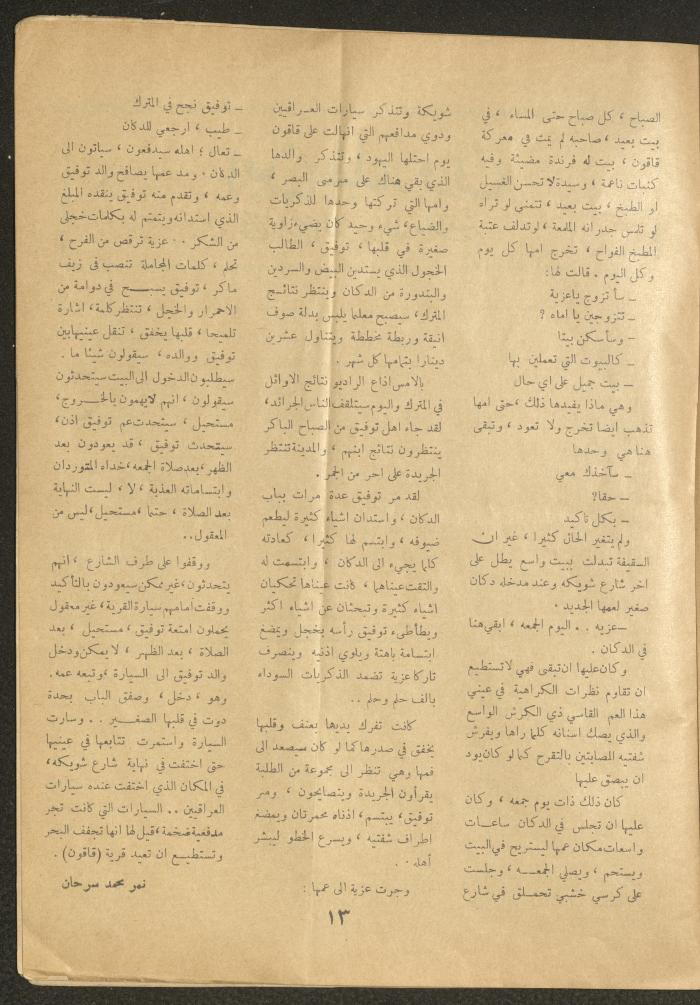 الصباح ، كل صباح حتى المساء ، في
بيت بعيد ، صاحبه لم يمت في معركة
قاقون ، بيت له فرندة مضيئة وفيه
كنبات ناعمة ، وسيدة لا تحسن الغسيل
او الطبخ ، بيت بعيد ، تتمنى لو تراه
لو تلمس جدرانه اللامعة ، لو تدلف عتبة
المطبخ الفواح ، تخرج امها كل يوم
وكل اليوم . قالت لها :
ـ سأتزوج يا عزية
ـ تتزوجين يا اماه ؟
ـ وسأسكن بيتا
ـ كالبيوت التي تعملين بها
ـ بيت جميل على اي حال
وهي ماذا يفيدها ذلك ، حتى امها
تذهب ايضا تخرج ولا تعود ، وتبقى
هنا هي وحدها
ـ سآخذك معي
ـ حقا ؟
ـ بكل تأكيد
ولم يتغير الحال كثيرا ، غير ان
السقيفة تبدلت ببيت واسع يطل على
اخر شارع شويكه وعند مدخله دكان
صغير لعمها الجديد .
ـ عزيه . . اليوم الجمعه ، ابقي هنا
في الدكان .
وكان عليها ان تبقى فهي لا تستطيع
ان تقاوم نظرات الكراهية في عيني
هذا العم القاسي ذي الكرش الواسع
والذي يصك اسنانه كلما راها ويفرش
شفتيه المصابتين بالتقرح كما لو كان يود
ان يبصق عليها
كان ذلك ذات يوم جمعه ، وكان
عليها ان تجلس في الدكان ساعات
واسعات مكان عمها ليستريح في البيت
ويستحم ، ويصلي الجمعه ، وجلست
على كرسي خشبي تحملق في شارع
شويكة وتتذكر سيارات العراقيين
ودوي مدافعهم التي انهالت على قاقون
يوم احتلها اليهود ، وتتذكر والدها
الذي بقي هناك على مرمى البصر ،
وامها التي تركتها وحدها للذكريات
والضياع ، شيء وحيد كان يضيء زاوية
صغيرة في قلبها ، توفيق ، الطالب
الخجول الذي يستدين البيض والسردين
والبندورة من الدكان وينتظر نتائج
المترك ، سيصبح معلما يلبس بدلة صوف
انيقة وربطة مخططة ويتناول عشرين
دينارا بتمامها كل شهر .
بالامس اذاع الراديو نتائج الاوائل
في المترك واليوم سيتلقف الناس الجرائد ،
لقد جاء اهل توفيق من الصباح الباكر
ينتظرون نتائج ابنهم ، والمدينة تنتظر
الجريدة على احر من الجمر .
لقد مر توفيق عدة مرات بباب
الدكان ، واستدان اشياء كثيرة ليطعم
ضيوفه ، وابتسم لها كثيرا ، كعادته
كلما يجيء الى الدكان ، وابتسمت له
والتقت عيناهما ، كانت عيناها تحكيان
اشياء كثيرة وتبحثان عن اشياء اكثر
ويطأطىء توفيق رأسه بخجل ويمضغ
ابتسامة باهتة ويلوي اذنيه وينصرف
تاركا عزية تضمد الذكريات السوداء
بالف حلم وحلم ..
كانت تفرك يديها بعنف وقلبها
يخفق في صدرها كما لو كان سيصعد الى
فمها وهي تنظر الى مجموعة من الطلبة
يقرأون الجريدة ويتصايحون ، ومر
توفيق ، يبتسم ، اذناه محمرتان ويمضغ
اطراف شفتيه ، ويسرع الخطو ليبشر
أهله . .
وجرت عزية الى عمها :
ـ توفيق نجح في المترك
ـ طيب ، ارجعي للدكان
ـ تعال ؛ اهله سيدفعون ، سيأتون الى
الدكان . ومد عمها يصافح والد توفيق
وعمه ، وتقدم منه توفيق ينقده المبلغ
الذي استدانه ويتمتم له بكلمات خجلى
من الشكر . . عزية ترقص من الفرح ،
تحلم ، كلمات المجاملة تنصب في زيف
ماكر ، توفيق يسبح في دوامة من
الاحمرار والخجل ، تنتظر كلمة ، اشارة
تلميحا ، قلبها يخفق ، تنقل عينيها بين
توفيق ووالده ، سيقولون شيئا ما .
سيطلبون الدخول الى البيت سيتحدثون
سيقولون ، انهم لا يهمون بالخروج ،
مستحيل ، سيتحدث عم توفيق اذن ،
سيتحدث توفيق ، قد يعودون بعد
الظهر ، بعد صلاة الجمعه ، خداه المتوردان
وابتساماته العذبة ، لا ، ليست النهاية
بعد الصلاة ، حتما ، مستحيل ، ليس من
المعقول ..
ووقفوا على طرف الشارع ، انهم
يتحدثون ، غير ممكن سيعودون بالتأكيد
ووقفت امامهم سيارة القرية ، غير معقول
يحملون امتعة توفيق ، مستحيل ، بعد
الصلاة ، بعد الظهر ، لا يمكن ودخل
والد توفيق الى السيارة ، وتبعه عمه .
وهو ، دخل ، وصفق الباب بحدة
دوت في قلبها الصغير . . وسارت
السيارة واستمرت تتابعها في عينيها
حتى اختفت في نهاية شارع شويكه ،
في المكان الذي اختفت عنده سيارات
العراقيين .. السيارات التي كانت تجر
مدفعية ضخمة ، قيل لها انها تجفف البحر
وتستطيع ان تعيد قرية (قاقون) .
نمر محمد سرحان
١٣